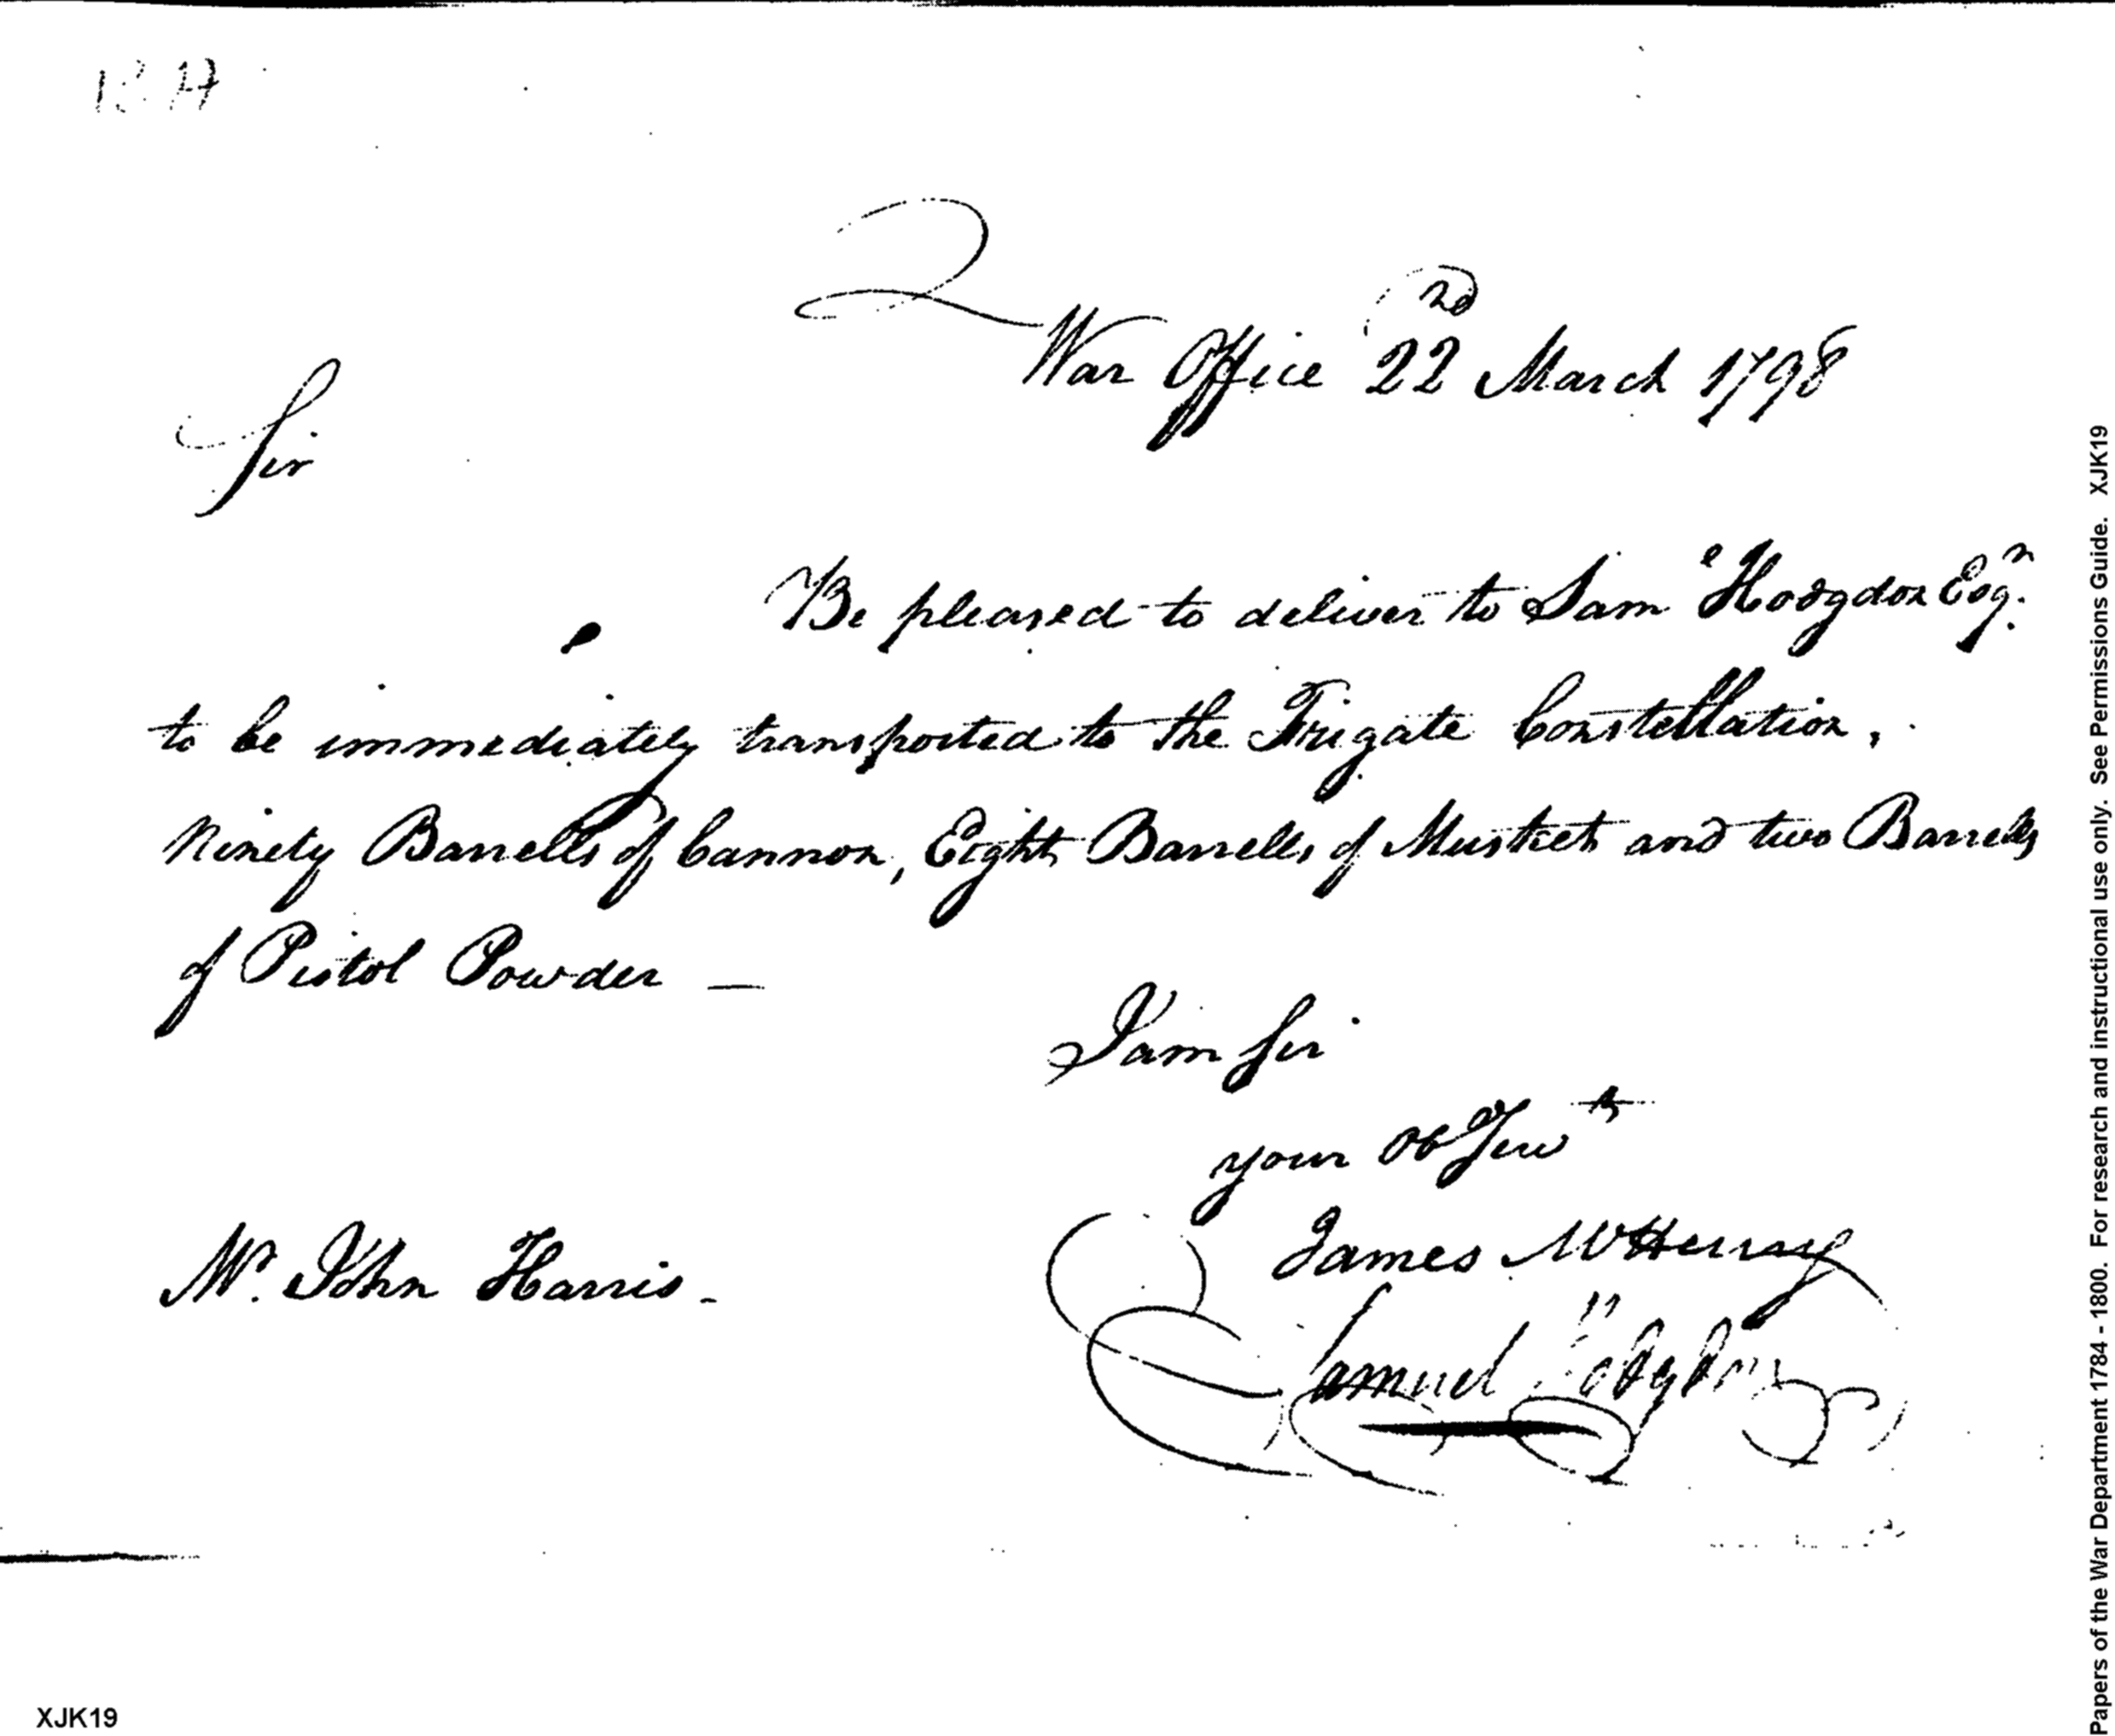 War Office 22nd March 1798
Sir
Be pleased to deliver to Saml Hodgdon Esqr.
to be immediately transported to the Frigate Constellation,
Ninety Barrells of Cannon, Eight Barrells of Musket and two Barrells
of Pistol Powder —
I am Sir
your Ob Servt
James McHenry
Mr. John Harris -
Samuel Hodgdon
XJK19
Papers of the War Department 1784 - 1800. For research and instructional use only. See Permissions Guide. XJK19